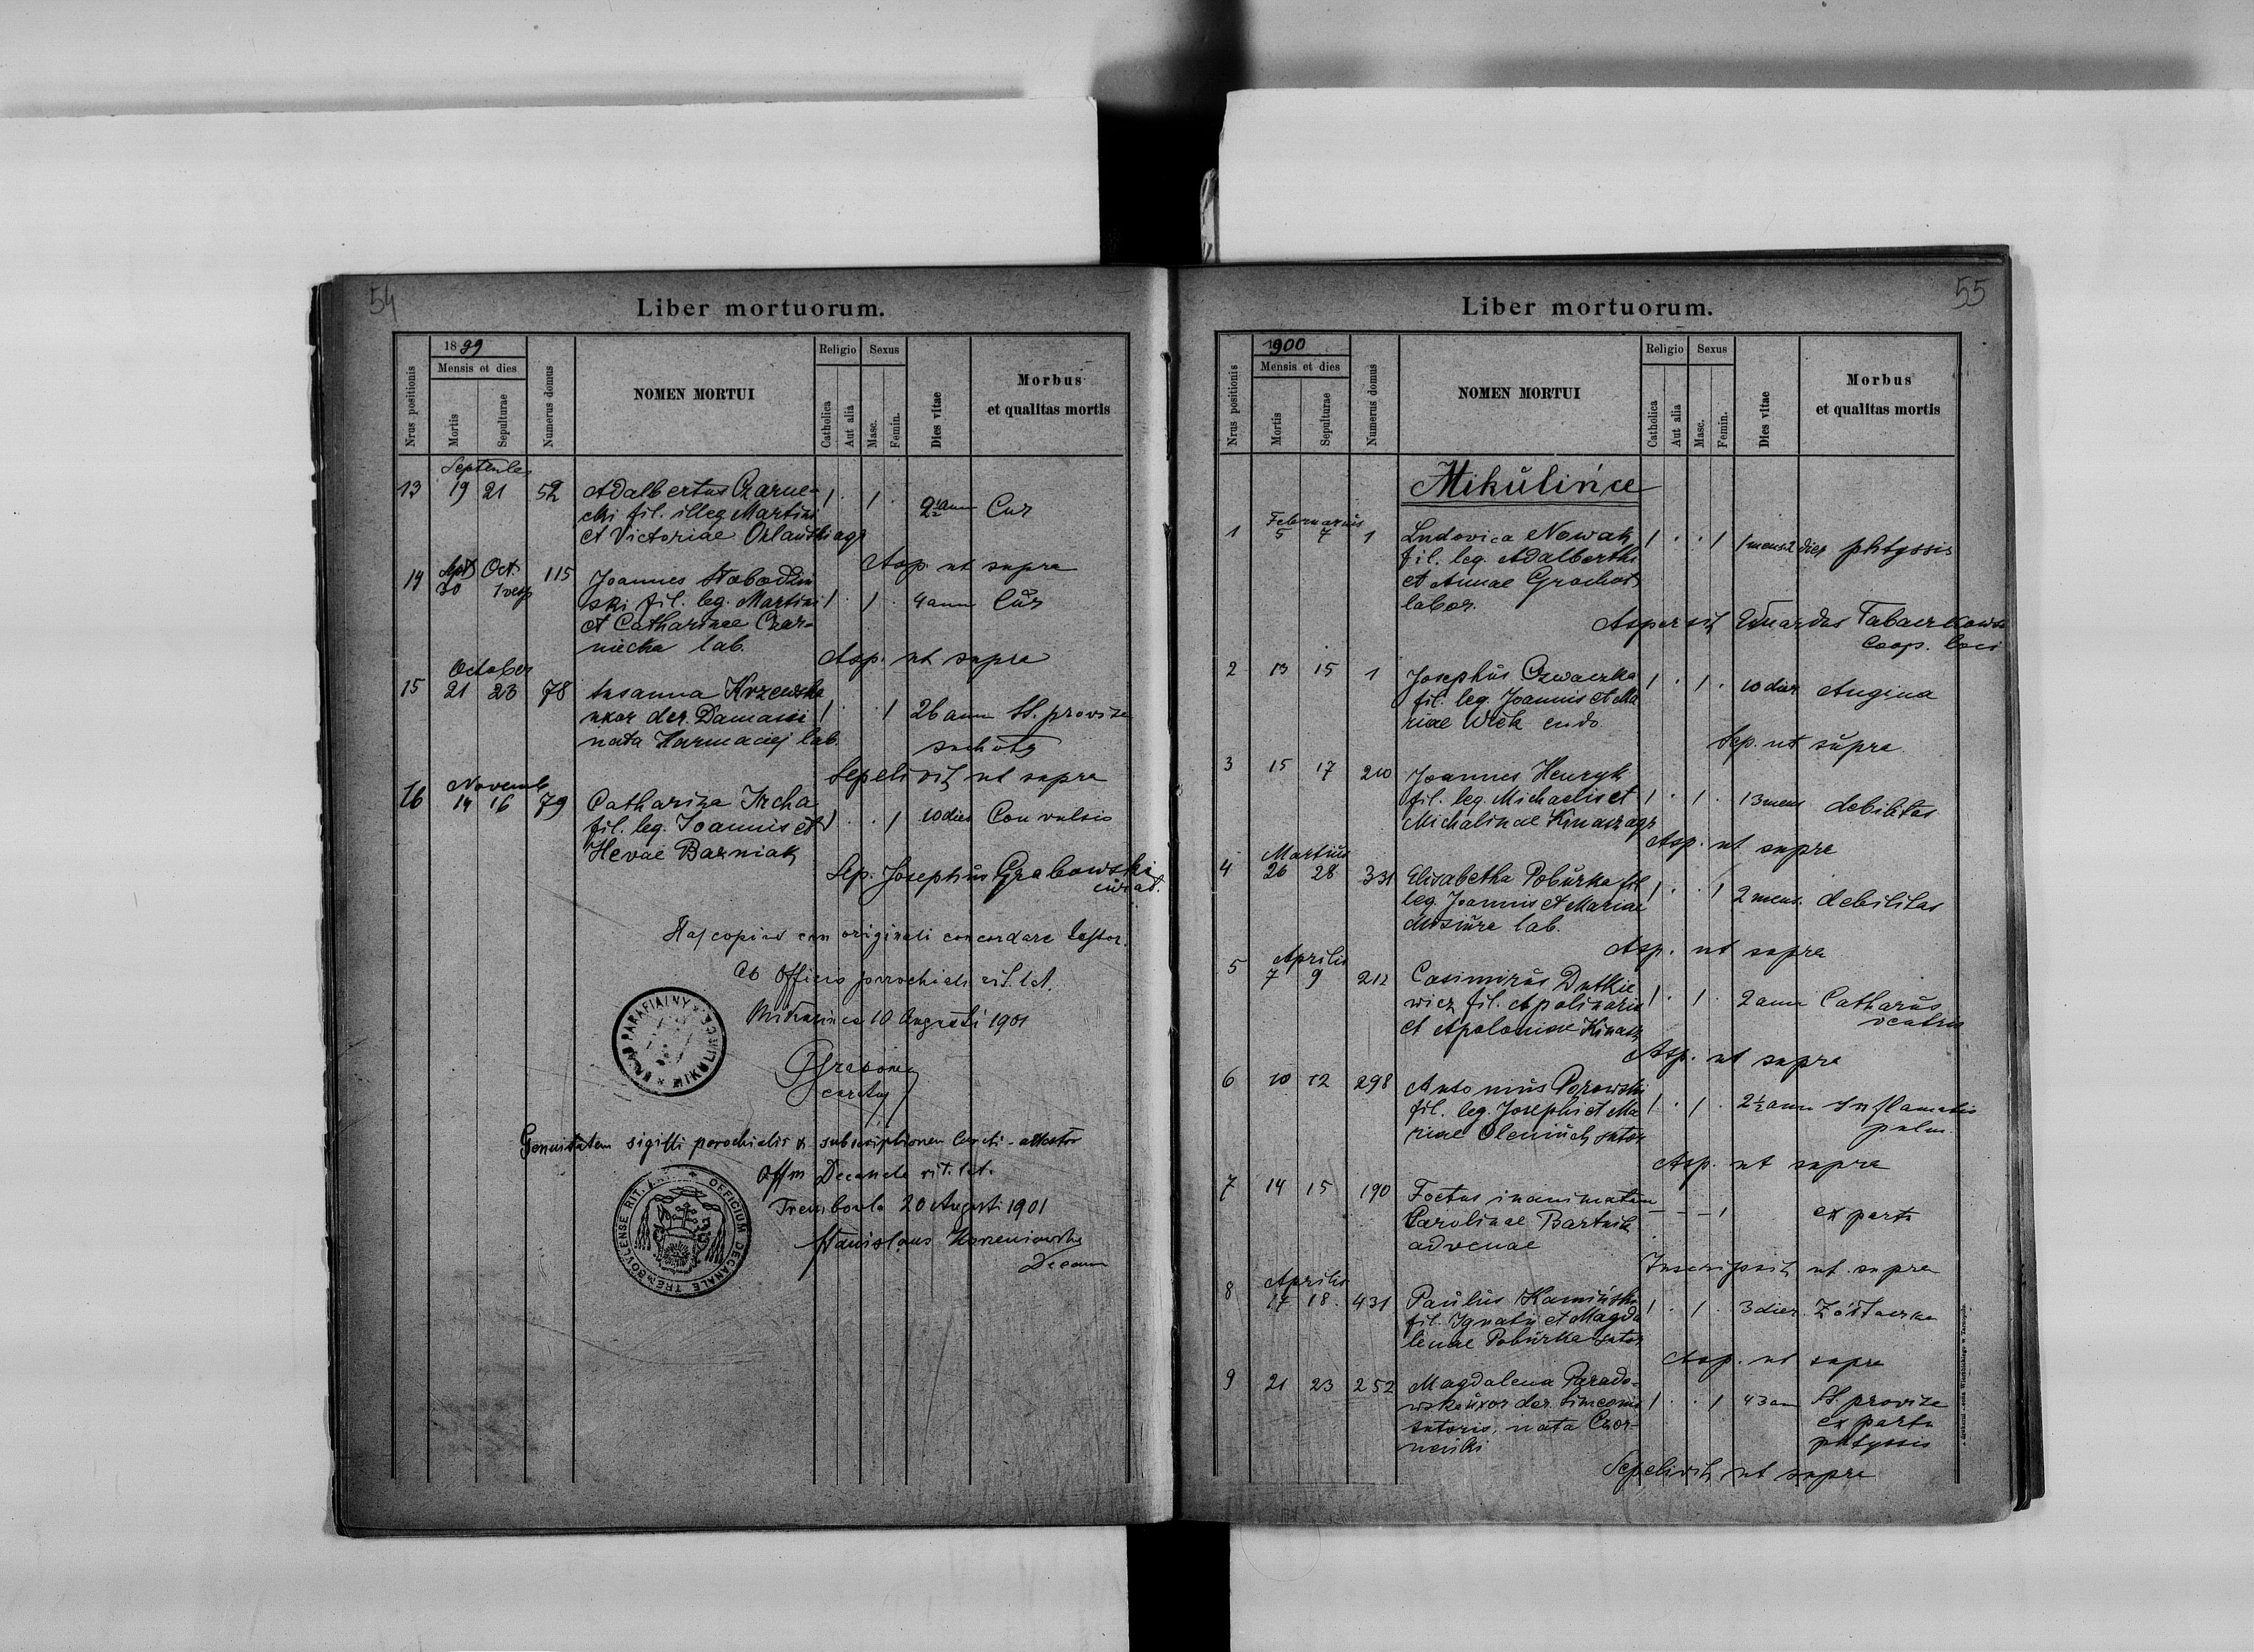 54
Liber mortuorum.
Nrus positionis
1899
Mensis et dies
Mortis
Sepulturae
Numerus domus
NOMEN MORTUI
Religio
Catholica
Aut alia
Sexus
Masc.
Femin.
Dies vitae
Morbus
et qualitas mortis
September
13 19 21 52 Adalbertus Czarne-
cki fil. illeg Martini 1 . 1 . 2½ ann Cur
et Victoriae agr
Asp. ut supra
14 Sept 30 Oct. 1 115 Joannes Słobodzin
ski fil. leg. Martini 1 . 1 . 4 ann Cur
et Catharinae Czar-
niecka lab.
Asp. ut supra
October
15 21 23 78 Susanna Krzewska
uxor der. Damasci 1 . . 1 26 ann SS. provisa
nata Harmaciej lab.
suchoty
Sepelivit ut supra
Novemb
16 14 16 79 Catharina Ircha
fil. leg. Joannis et 1 . . 1 10 dies Convulsio
Hevae Barniak
Sep. Josephus Grabowski
curat.
Has copias cum originali concordare testor.
Ab Officio parochiali rit. lat.
Mikulince 10 Augusti 1901
URZĄD PARAFIALNY * W MIKULIŃCACH *
Genuitatem sigilli parochialis & subscriptionem Curati - attestor
Offm Decanale rit. lat.
Trembowla 20 Augusti 1901
Stanislaus
Decanus
OFFICIUM DECANALE TREMBOVLENSE RIT. LAT.
55
Liber mortuorum.
Nrus positionis
1900
Mensis et dies
Mortis
Sepulturae
Numerus domus
NOMEN MORTUI
Religio
Catholica
Aut alia
Sexus
Masc.
Femin.
Dies vitae
Morbus
et qualitas mortis
Mikulińce
Februarius
1 5 7 1 Ludovica Nowak 1 . . 1 1 mens 2 dies phtyssis
fil. leg. Adalberthi
et Annae Grochot
labor.
Aspersit Eduardus Tabaczkowski
Coop. loci
2 13 15 1 Josephus Czwaczka 1 . 1 . 10 dier Angina
fil. leg. Joannis et Ma
riae Wilk
Sep. ut supra
3 15 17 210 Joannes Henryk
fil. leg. Michaelis et 1 . 1 . 13 mens debilitas
Michalinae Kinasz agr
Asp. ut supra
Martius
4 26 28 331 Elisabetha Poburka fil
leg. Joannis et Mariae 1 . . 1 2 mens. debilitas
Misiura lab.
Asp. ut supra
Aprilis
5 7 9 212 Casimirus Dutkie
wicz fil. Apolinaris 1 . 1 . 2 ann Catharus
et Apoloniae Kinasz ventris
Asp. ut supra
6 10 12 298 Antonius Porowski
fil. leg. Josephi et Ma 1 . 1 . 2½ ann Inflamatio
riae Oleniuch sutor pulm.
Asp. ut supra
7 14 15 190 Foetus inanimatum
Carolinae Bartnik - - - 1 ex partu
advenae
Inscripsit ut supra
Aprilis
8 17 18. 431 Paulus Kamiński 1 . 1 . 3 dier. Żółtaczka
fil. Ignatii et Magda
lenae Poburka sutor
Asp. ut supra
9 21 23 252 Magdalena Parado-
wska uxor der. Simeonis 1 . . 1 43 an SS. provisa
sutoris, nata Czer- ex partu
phtyssis
Sepelivit ut supra